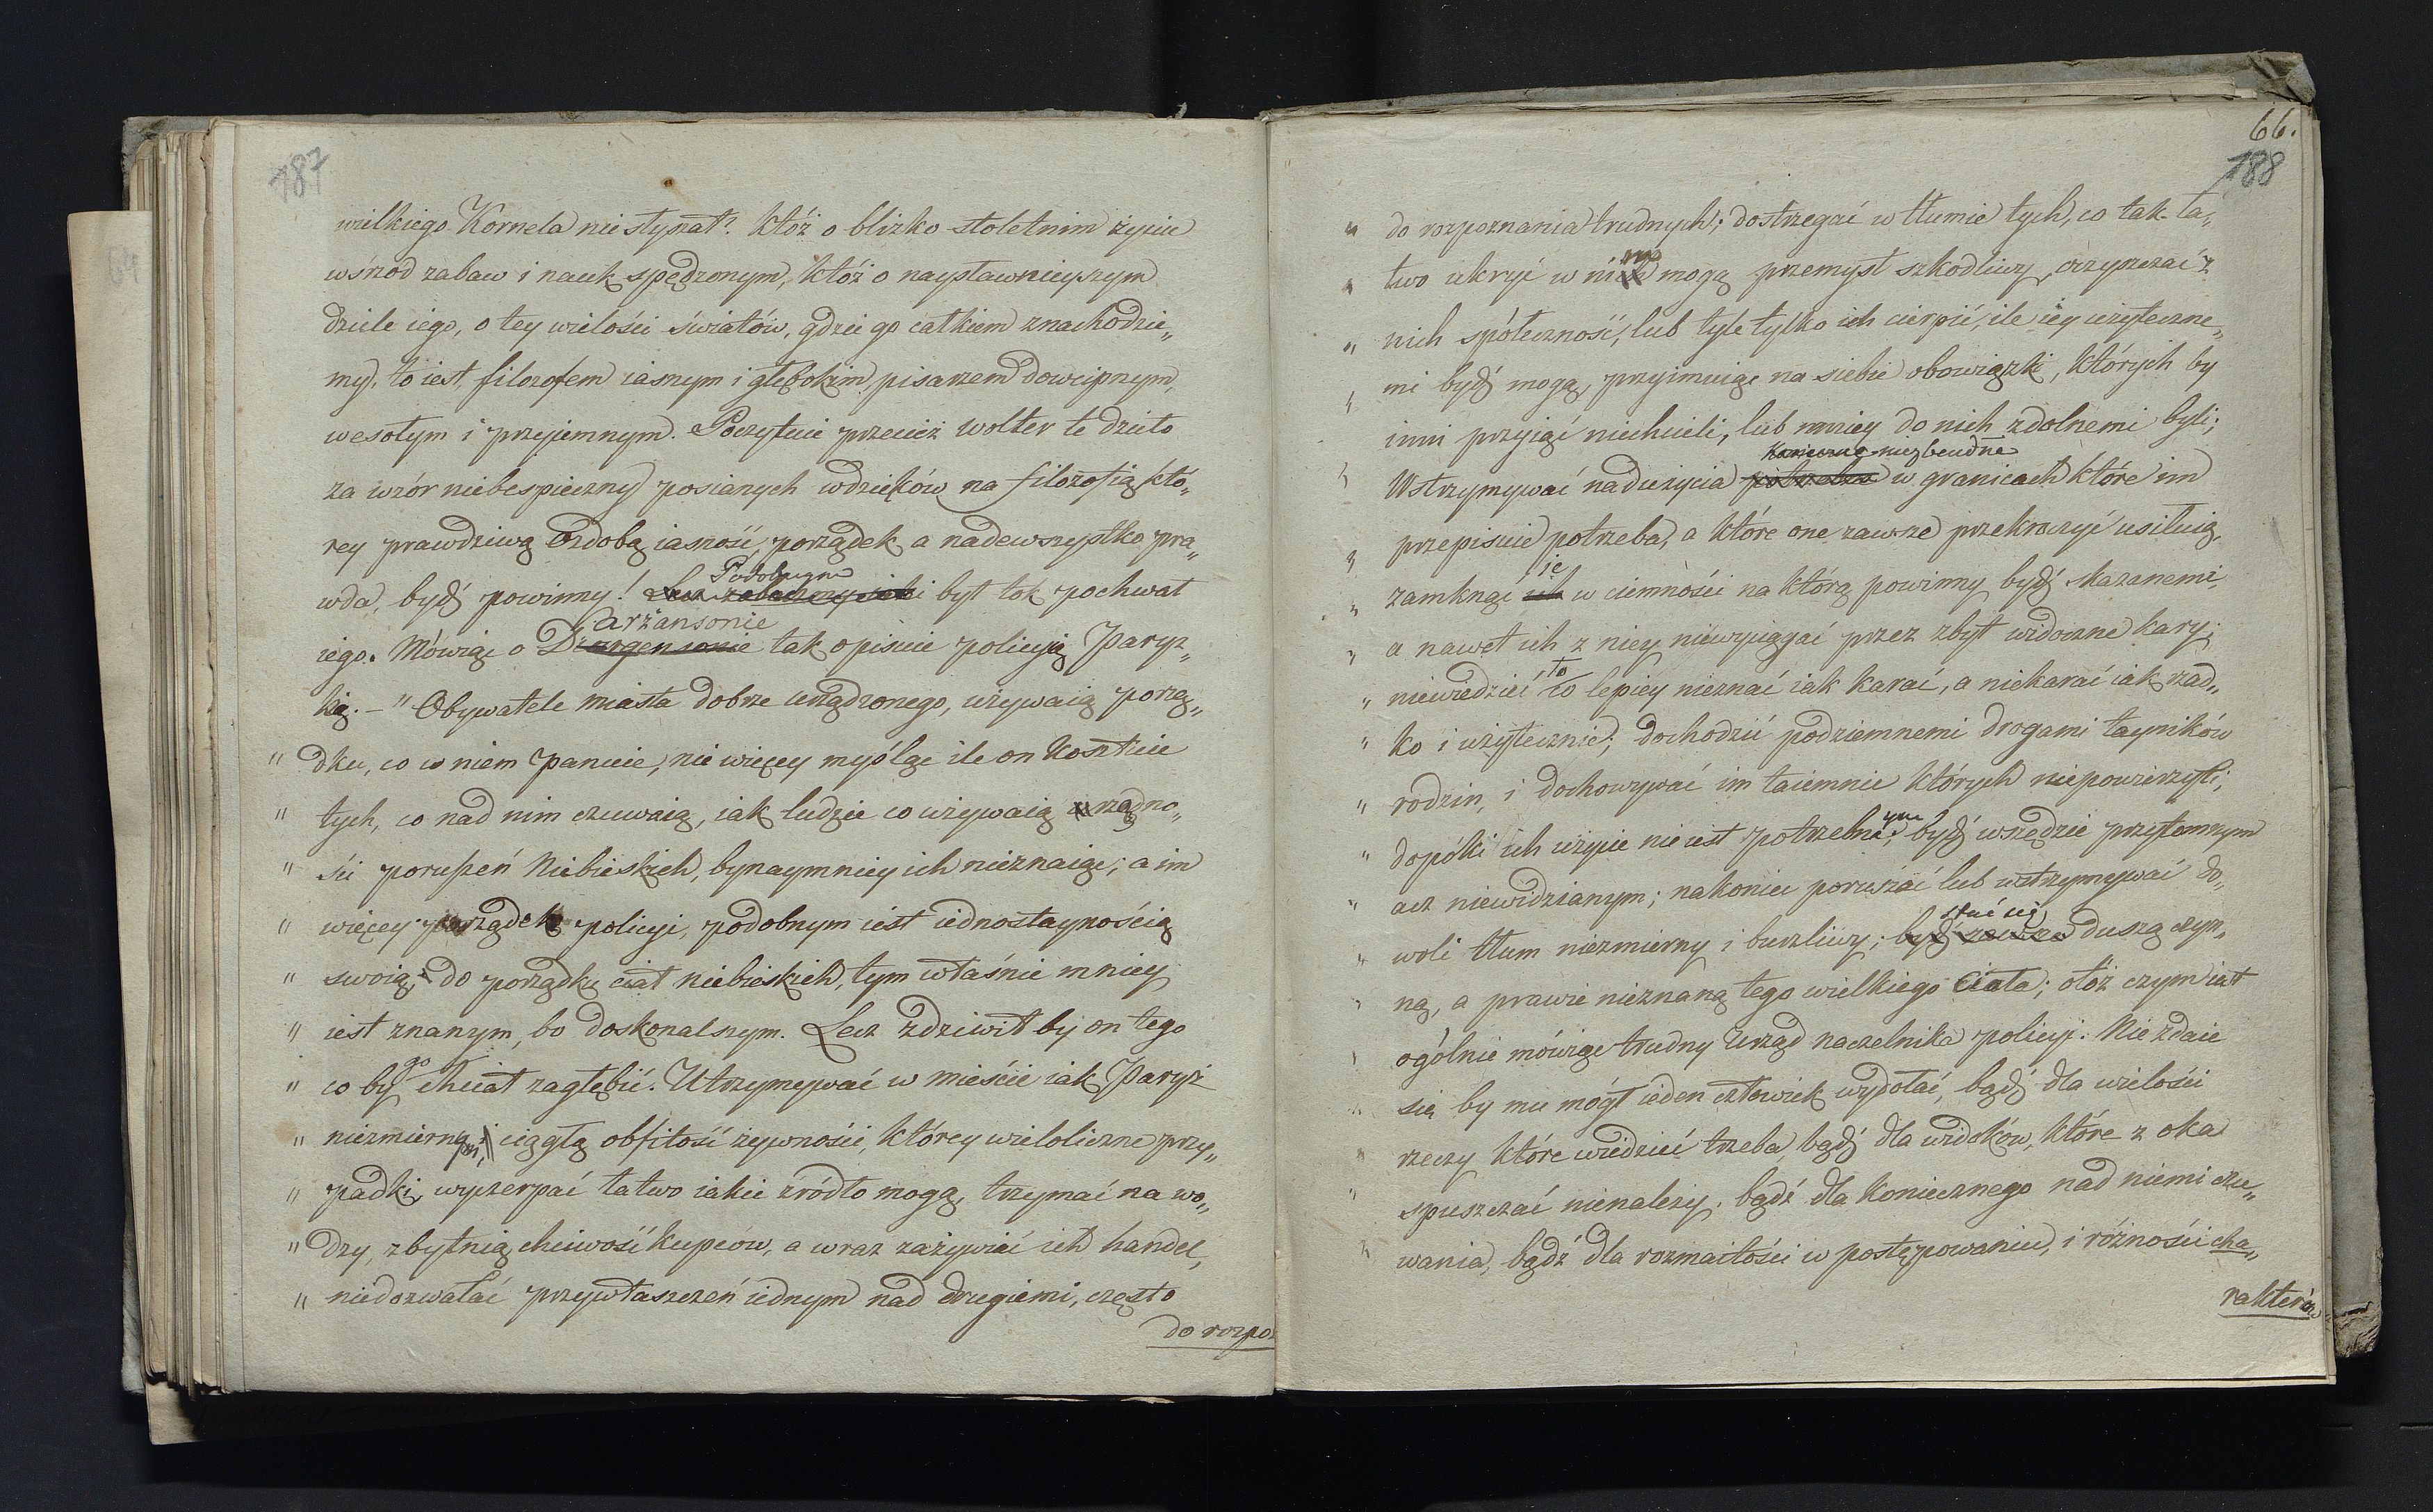 187
wielkiego Kornela nie słynął? któż o blizko stoletnim życiu
wśrzód zabaw i nauk spędzonym, któż o naysławnieyszym
dziele iego, o tey wielości światów, gdzie go całkiem znachodzie„
my, to iest, filozofem iasnym i głębokim, pisarzem dowcipnym,
wesołym i przyjemnym. Poczytuie przecież Wolter te dzieło
za wzór niebespieczny posianych wdzięków na filozofią któ„
rey prawdziwą ozdobą iasność porządek a nadewszystko pra„
Podobnym
wda, bydź powinny! Lecz zobaczmy iaki był tok pochwał
arżansonie
iego. Mówiąc o D'argensonie tak opisuie policyją Paryz„
ką. – " Obywatele miasta dobrze urządzonego, używaią porzą„
" dku, co w niem panuie, nie więcey myśląc ile on kosztuie
" tych, co nad nim czuwaią, iak ludzie co używaią rządno„
" ści poruszeń Niebieskich, bynaymniey ich nieznaiąc; a im
" więcey porządek policyi, podobnym iest iednostaynością
" swoią, do porządku ciał niebieskich, tym właśnie mniey
" iest znanym, bo doskonalszym. Lecz zdziwił by on tego
go
" co by chciał zagłębić. Utrzymywać w mieście iak Paryż
" niezmierną i ciągłą obfitość żywności, którey wieloliczne przy„
" padki, wyczerpać łatwo iakie źródło mogą, trzymać na wo„
" dzy, zbytnią chciwość kupców, a wraz zażywiać ich handel,
" niedozwalać przywłaszczeń iednym nad drugiemi, często
do rozpoz
66.
188
" do rozpoznania trudnych; dostrzegać w tłumie tych, co tak ła„
" two ukryć w nim mogą przemysł szkodliwy, oczyszczać z
" nich społeczność, lub tyle tylko ich cierpić, ile iey użyteczne„
" mi bydź mogą, przyimuiąc na siebie obowiązki, których by
" inni przyiąć niechcieli, lub mniey do nich zdolnemi byli;
konieczne niezbendne
" Wstrzymywać nadużycia potrzebne w granicach które im
" przepisuie potrzeba, a które one zawsze przekroczyć usiłuią,
ie
" zamknąć ich w ciemności na którą powinny bydź skazanemi,
" a nawet ich z niey niewyciągać przez zbyt widoczne kary;
to
" niewiedzieć co lepiey nieznać iak karać, a niekarać iak rzad„
" ko i użytecznie; dochodzić podziemnemi drogami tayników
" rodzin, i dochowywać im taiemnic których niepowierzyli;
ym
" dopóki ich użycie nie iest potrzebne; bydź wszędzie przytomnym
" acz niewidzianym; nakoniec poruszać lub wstrzymywać do„
stać się
" woli tłum niezmierny i burzliwy; bydź zawsze duszą czyn„
" ną, a prawie nieznaną tego wielkiego Ciała; otóż czym iest
" ogólnie mówiąc trudny Urząd naczelnika policyi. Nie zdaie
" się by mu mógł ieden człowiek wydołać, bądź dla wielości
" rzeczy które wiedzieć trzeba, bądź dla widoków, które z oka
" spuszczać nienależy, bądź dla koniecznego nad niemi czu„
" wania, bądź dla rozmaitości w postępowaniu, i różności cha„
rakterów